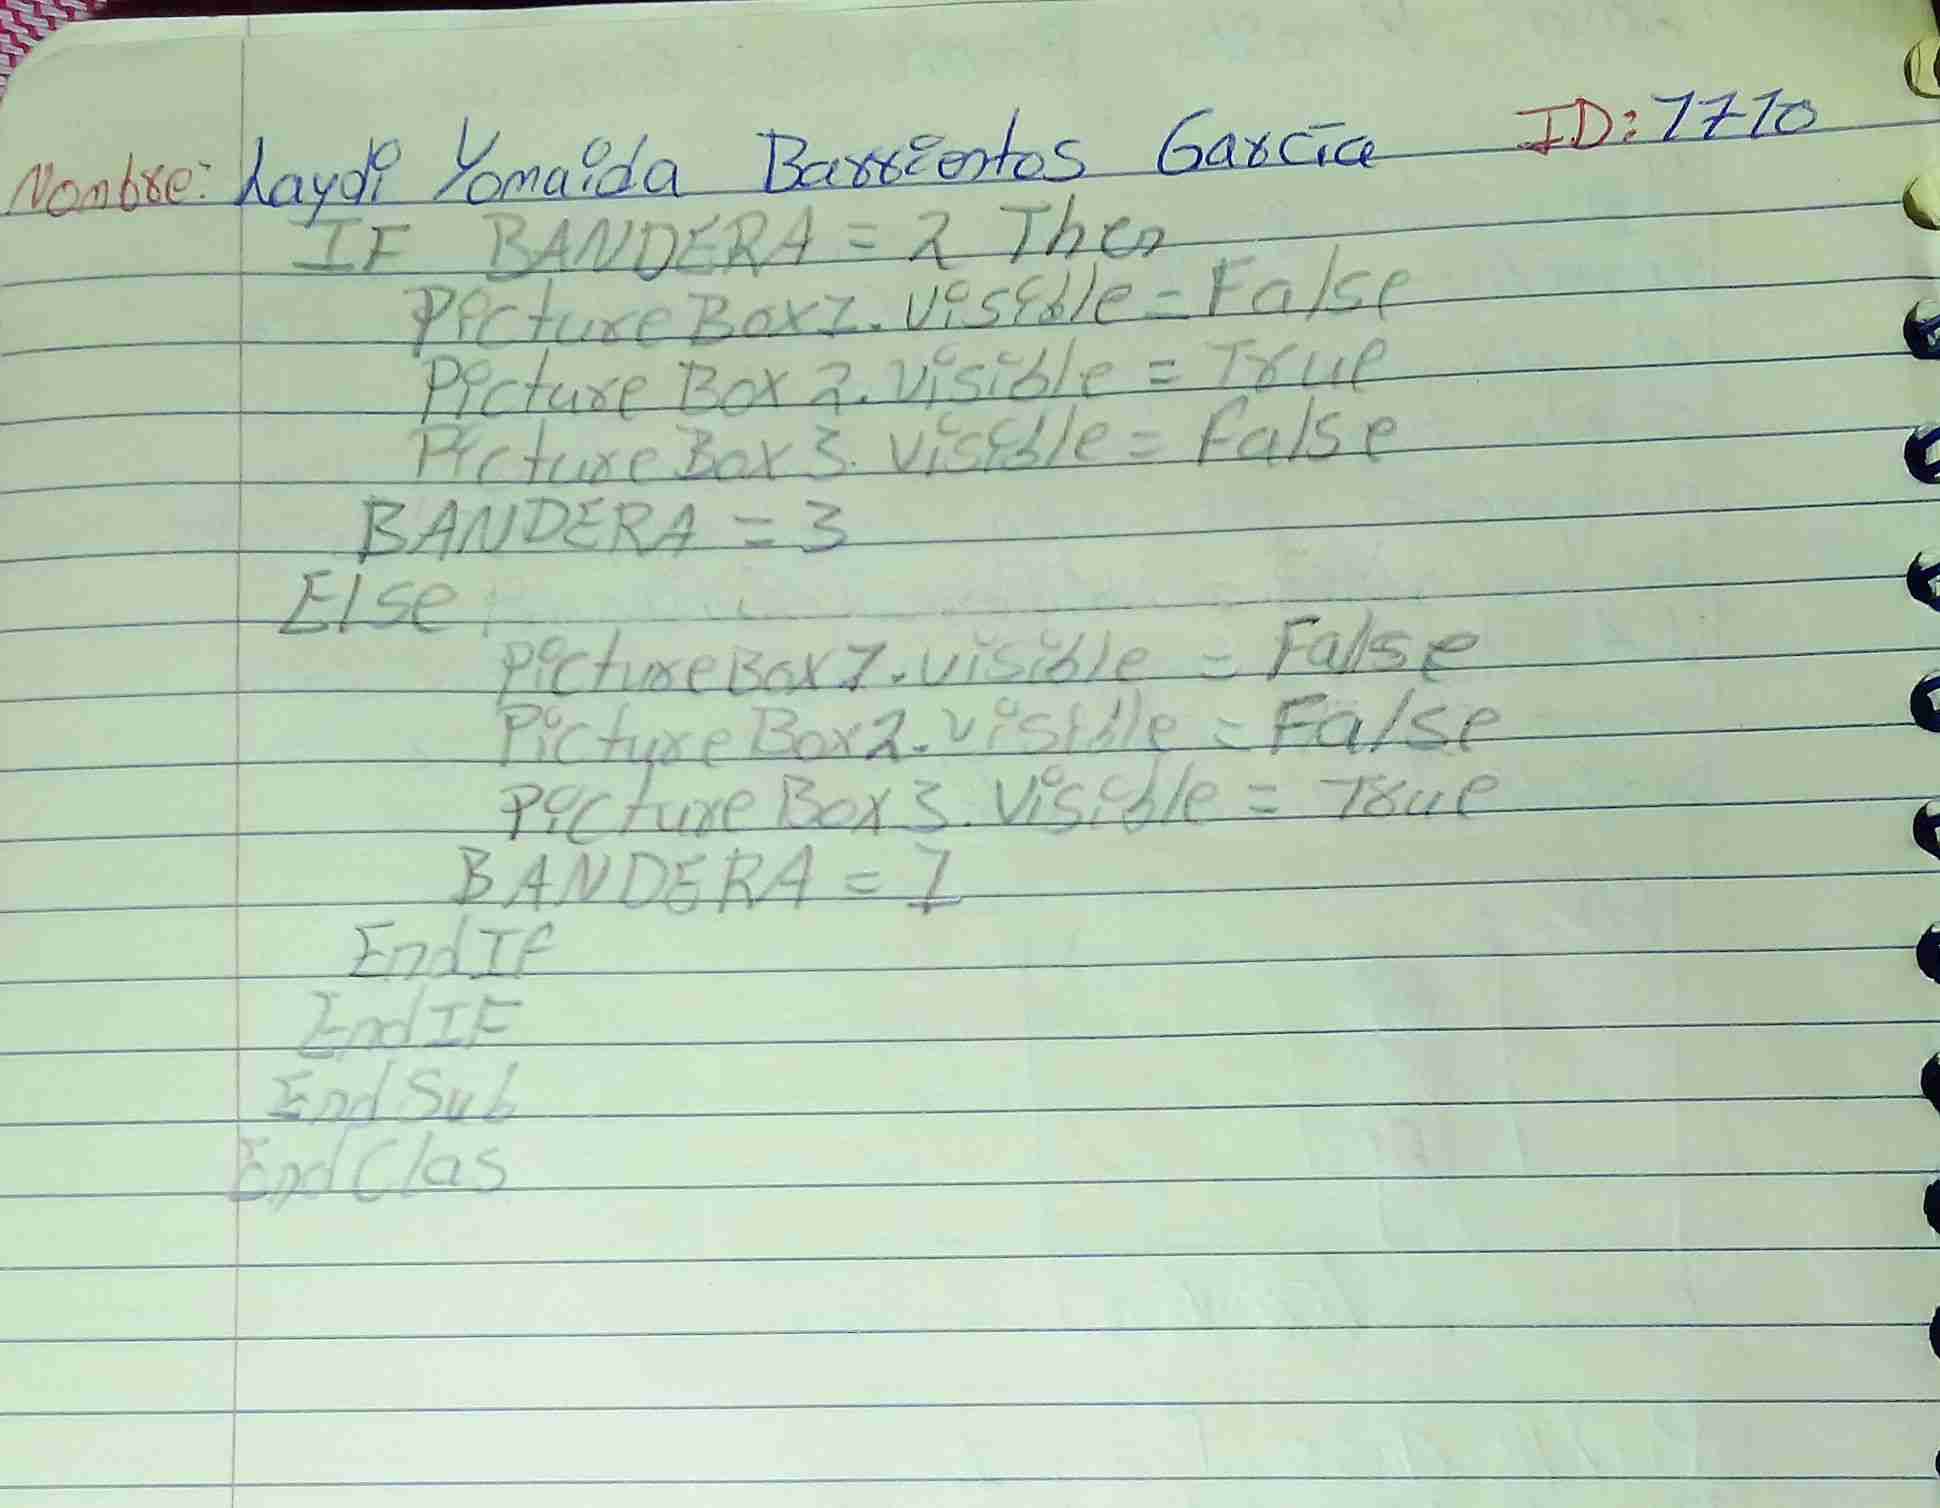 Nombre: Laydi Yomaida Barrientos García ID: 1710
IF BANDERA = 2 Then
PictureBox1.visible = False
PictureBox2.visible = True
PictureBox3.visible = False
BANDERA = 3
Else
PictureBox1.visible = False
PictureBox2.visible = False
PictureBox3.visible = True
BANDERA = 1
End If
End IF
End Sub
End Clas